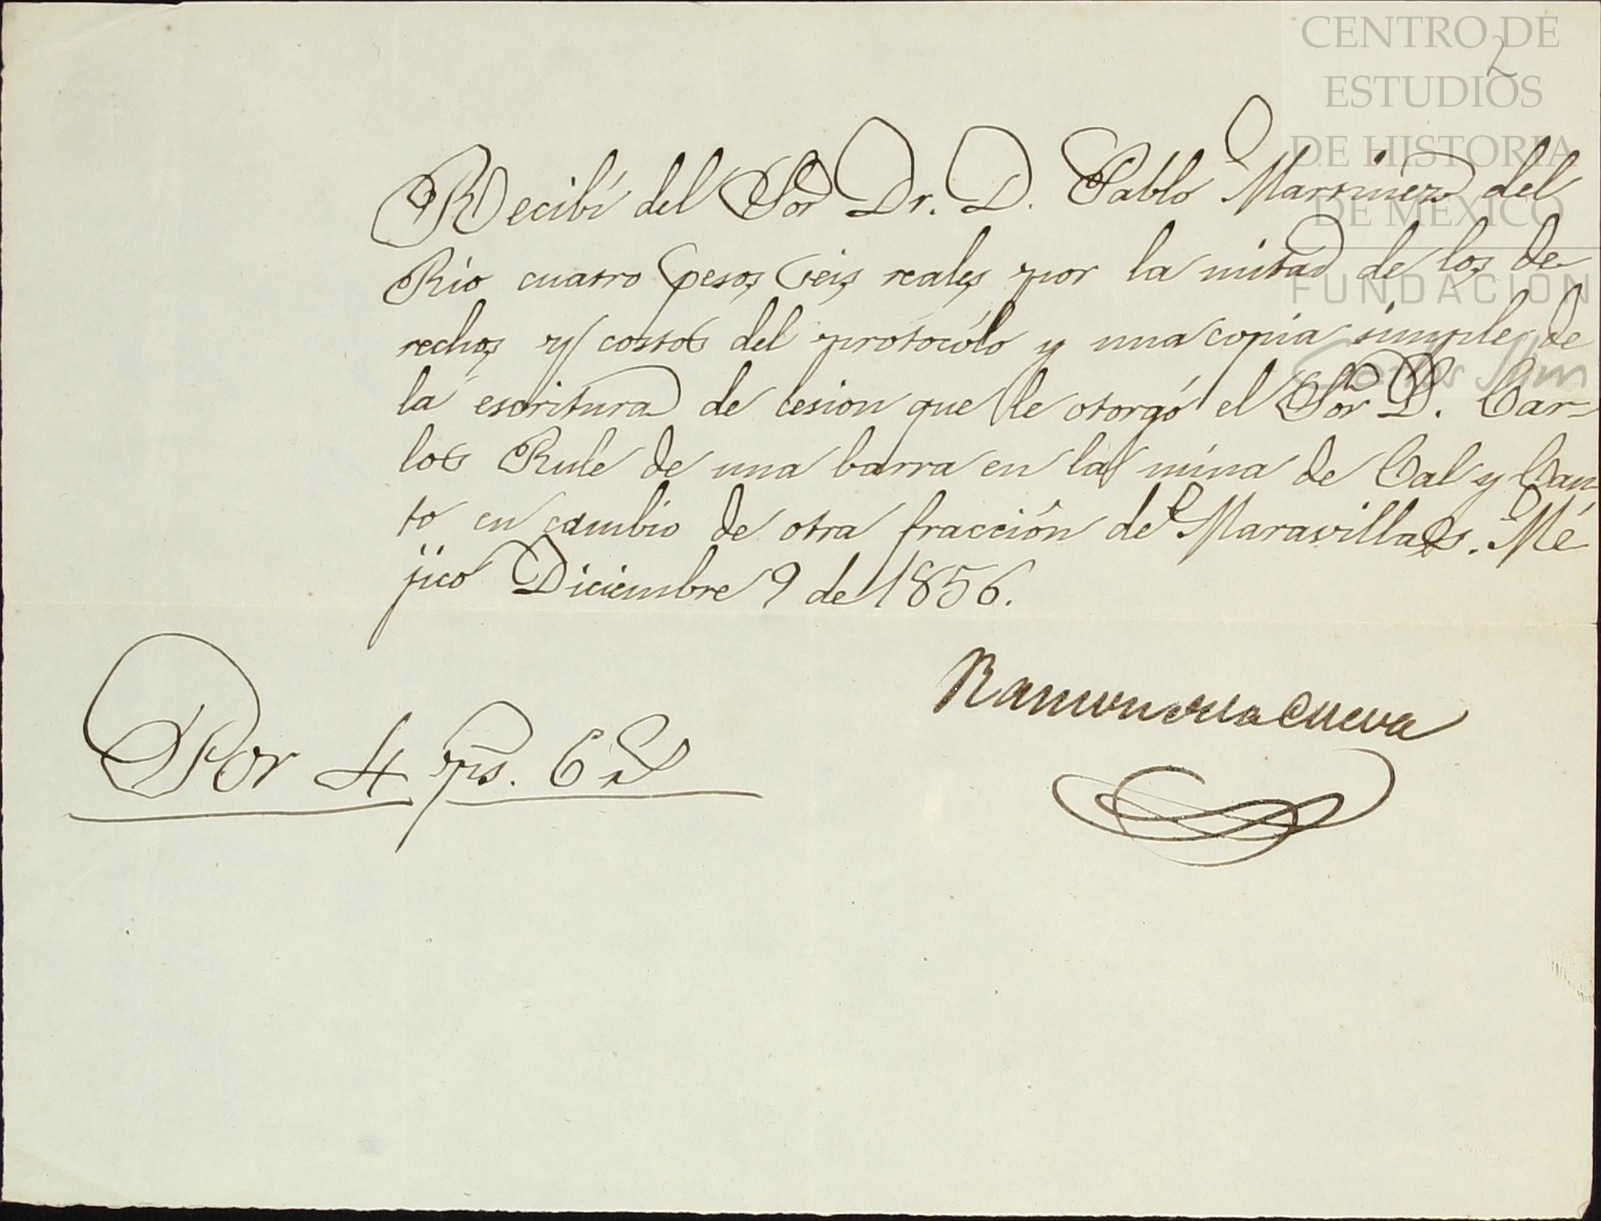 CENTRO DE
ESTUDIOS
DE HISTORIA
DE MÉXICO
FUNDACIÓN
Carlos Slim
2
Recibí del Sor Dr. D. Pablo Martinez del
Rio cuatro pesos seis reales por la mitad de los de
rechos y costos del protocólo y una copia simple de
la escritura de cesion que le otorgó el Sor D. Car-
los Rule de una barra en la mina de Cal y Can
to en cambio de otra fracción de Maravillas. Mé
jico Diciembre 9 de 1856.
Ramon de la Cueva
Por 4 ps. 6 rs